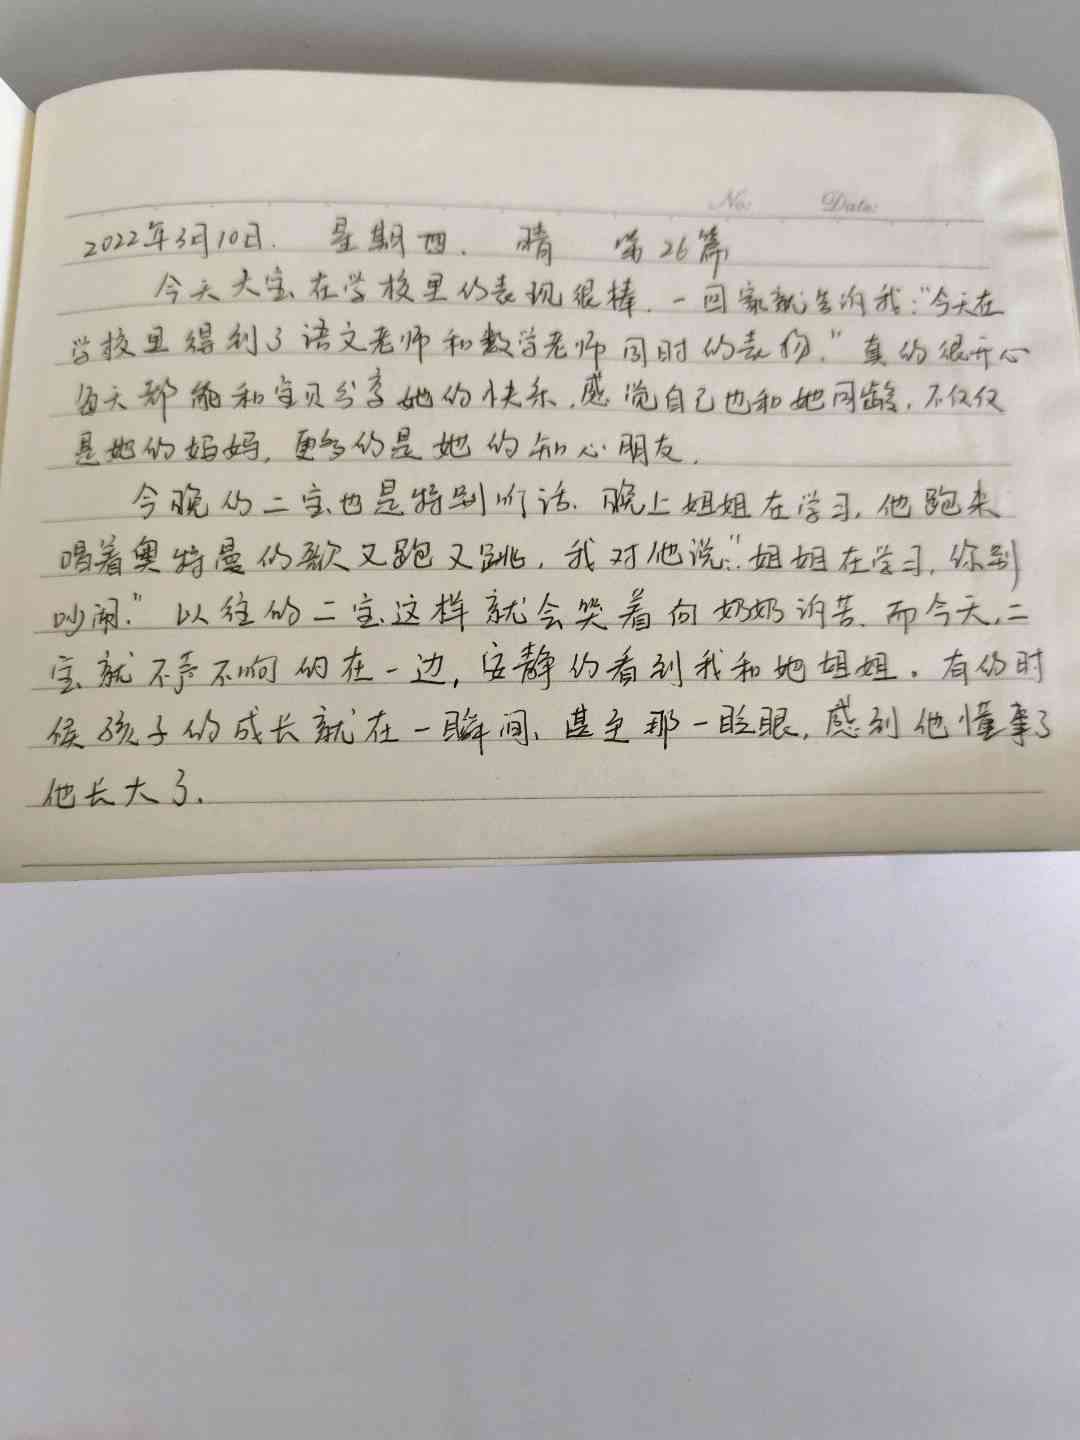 No: Date:
2022年3月10日. 星期四. 晴 第26篇
今天大宝在学校里的表现很棒.一回家就告诉我:"今天在
学校里得到了语文老师和数学老师同时的表扬."真的很开心
每天都能和宝贝分享她的快乐,感觉自己也和她同龄,不仅仅
是她的妈妈,更多的是她的知心朋友.
今晚的二宝也是特别听话.晚上姐姐在学习,他跑来
唱着奥特曼的歌又跑又跳,我对他说:"姐姐在学习,你别
吵闹."以往的二宝这样就会哭着向奶奶诉苦.而今天,二
宝就不声不响的在一边,安静的看到我和她姐姐。有的时
候孩子的成长就在一瞬间、甚至那一眨眼,感到他懂事了
他长大了.